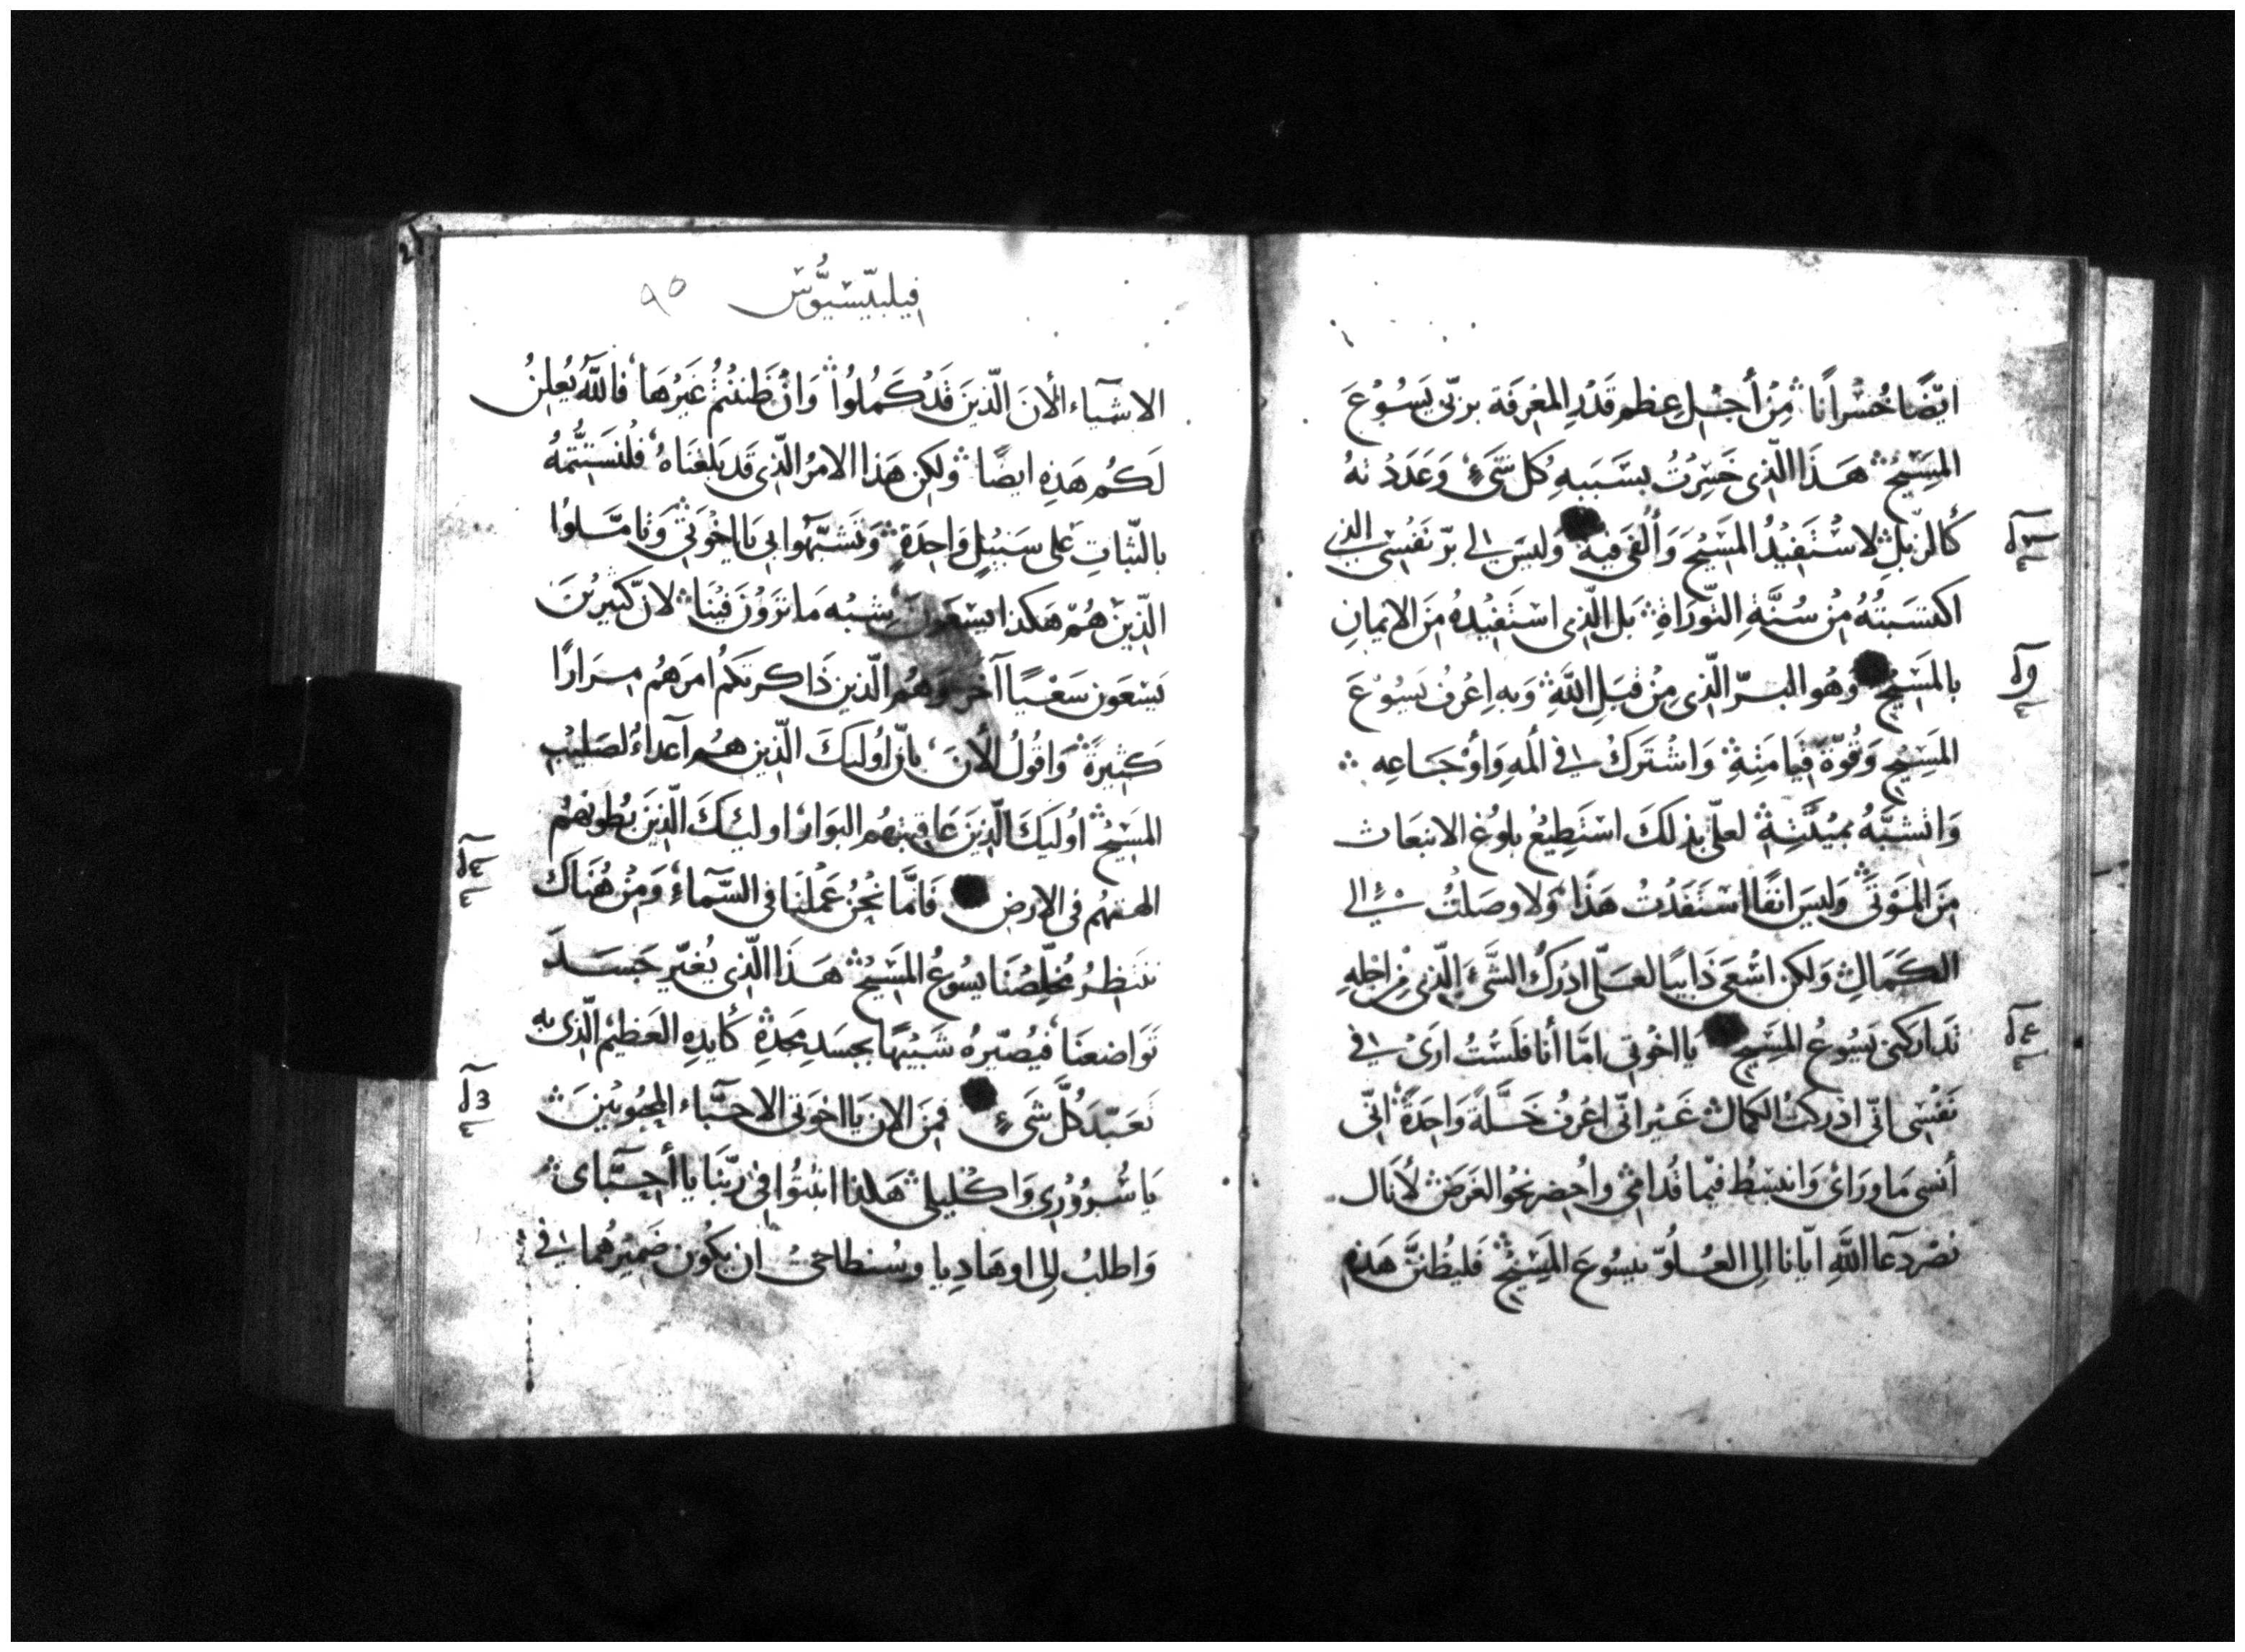 ايضًا خُسْرانًا مِنْ أجْل عظم قَدْرِ المعْرفَة بربّى يَسُوْعَ
المَسِيْحِ هَذَا الّذى خَسِرْتُ بسَبَبهِ كُل شَىْءٍ وَعَدَدْتهُ
كَألزبْلِ لاسْتَفِيْدُ المَسِيْحَ وَألْفى فيهِ وَليسَ لِى برّ نَفْسِى الذى
اكتسَبتُهُ مِنْ سُنَّةِ التّوْرَاةِ بَل الّذِى اسْتَفِيْدهُ مِنَ الايمانِ
بالمَسِيْحِ وَهُو البرّ الّذى مِنْ قِبَلِ اللَّهِ وَبهِ اِعْرفُ يَسُوْعَ
المَسِيْحِ وَقُوّةَ قِيَامَتِهِ وَاشْتَركُ فِى المهِ وَأوْجَاعِه
وَاتشبَّهُ بمِيْتَتِهِ لعلّى بذلكَ اسْتَطِيعُ بلوُغ الانبعَاث
مِنَ المَوْتَى وَليسَ انفًا اسْتَفَدْت هَذَا وَلا وصَلتُ الى
الكَمَالِ وَلكن اسْعَى ذَايبًا لعَلّى ادْركُ الشَّىْءَ الّذى مِنْ اجْلهِ
تَداركنى يَسُوْعُ المَسِيْحِ يَا اخْوتى امَّا أنا فَلَسْتُ ارَىْ فِى
نَفْسِى انّى ادْركتُ الكمالَ غَيْر انّى اعْرفُ خَلَّةً وَاحِدَةً انّى
أنسى مَا وَرَاىْ وَانبَسْطُ فيْما قُدامِى واُحْضر نحْوَ الغَرَضِ لأنَال
نصْر دعآ اللَّهِ ايّانا الِى العُلُوّ بيسُوعَ المَسِيْحِ فَليُظنَّ هَذهِ
فيلبّيسْيُوُّسْ ٩٥
الاشيَآء ألأن الّذِينَ قَدْ كَمُلُوا وَانْ ظَنَنْتُمْ غَيْرُهَا فاللَّهُ يُعلِنُ
لَكُم هَذِهِ ايضًا وَلكِن هَذا الامرُ الّذِى قَد بَلَغنَاهُ فلْنَستتُّمهُ
بالثّباتِ عَلى سَبيْلٍ وَاحِدَةٍ وَتَشبَّهُوا بى يَا اخْوَتِى وَتامَّلوُا
الّذِيْن هُمّ هَكذا يَسْعَونَ بِشبْه مَا تَرَوْنَ فيْنَا لانّ كثيريْنَ
يَسْعَون سَعْيًا آخَر وَهُم الّذين ذَاكرتكُم امرَهُم مِرَارًا
كَثِيرَةً وَاقُولُ ألأن بانّ اوُليكَ الّذين هُم آعدآءُ لصَليْبِ
المَسِيْحِ اوُليَكَ الّذينَ عَاقبتهُم البوَار اوليْكَ الّذِينَ بُطونهُمْ
الهتهُم فى الارضِ فَامَّا نَحْنُ عَمْلنَا فى السَّمآءِ وَمِنْ هُنَاكَ
ننتظِرُ مُخلّصُنَا يسُوعُ المَسِيْحِ هَذَا الّذى يُغيّر جَسَدَ
تَوَاضعنَا فيُصيّرهُ شَبيْهًا بجَسَدِ مجدِهِ كأيدِهِ العَظيْمِ الّذى به
تَعَبّدَ كُلّ شَىْءٍ فمِنَ الان يَا اخوَتى الاحبَّآء المحبُوبْينَ
يَا سُرُوْرِى وَاكْليْلِى هَكذا اثبتُوا فِى رَبّنَا يَا أحِبَّآى
وَاطلبُ اِلى اوهَادِيا وسُنطاخىْ ان يكُوْن ضَميرُهما فِى